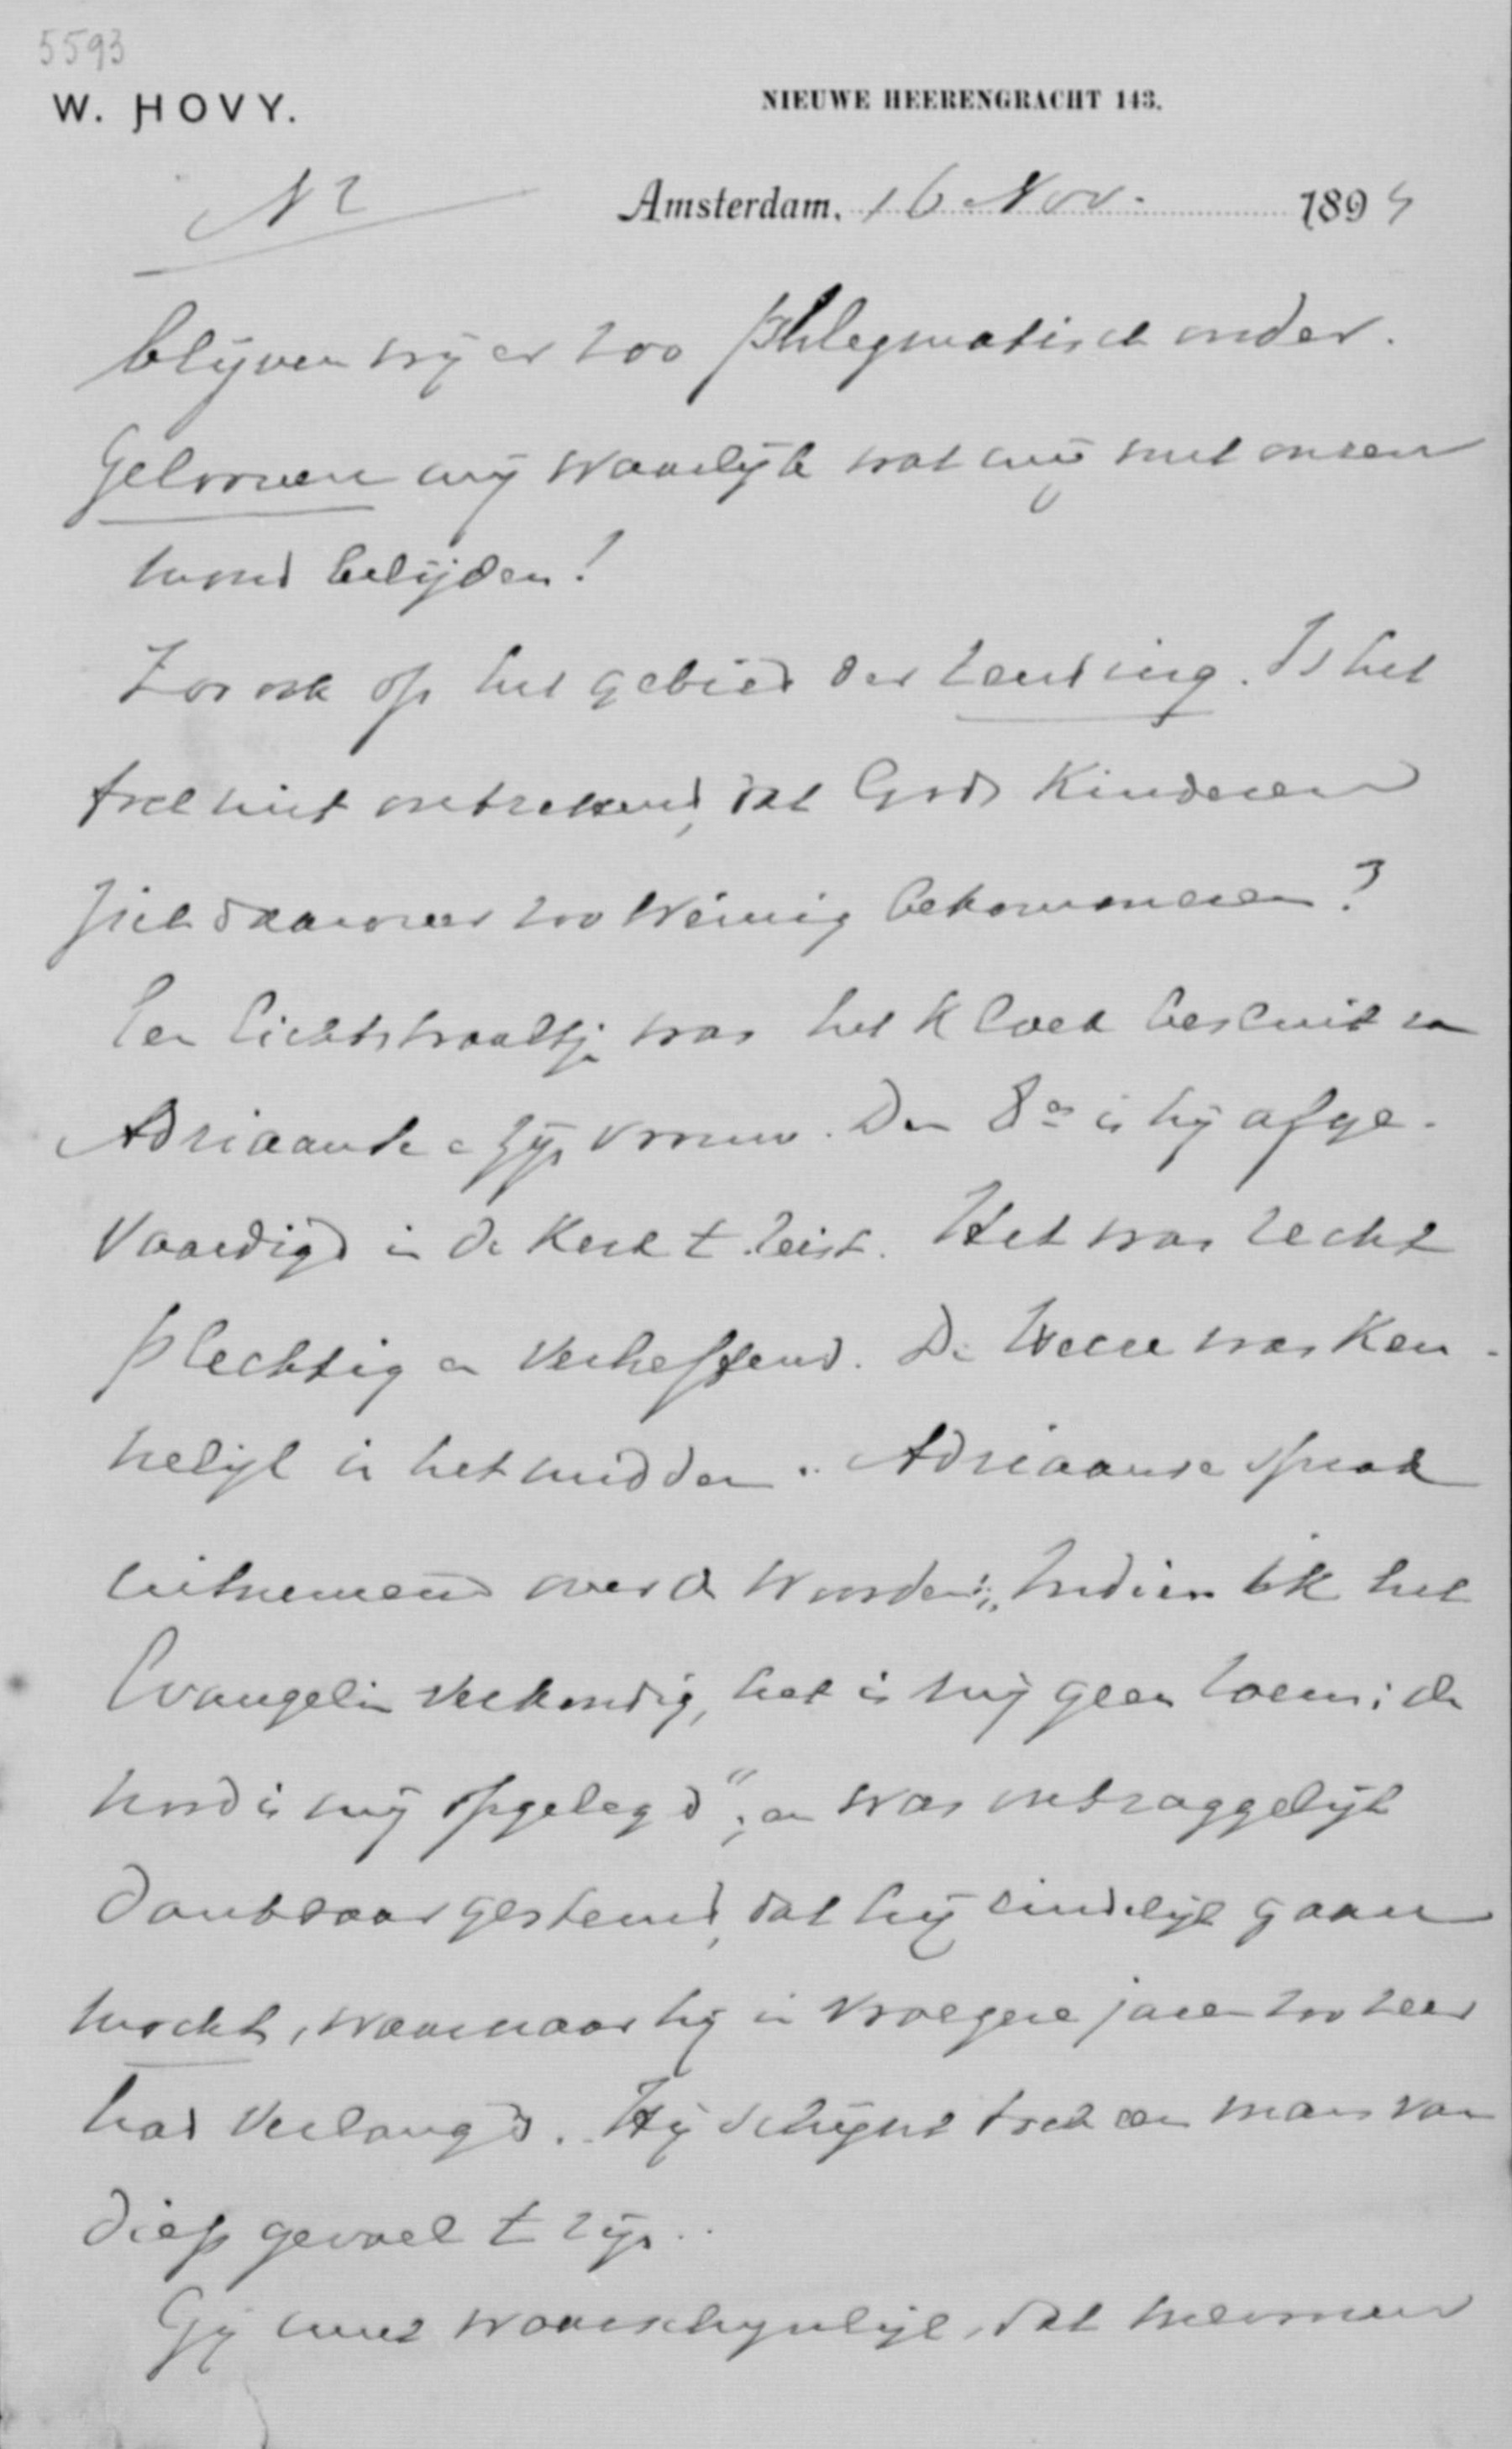 5593
W. HOVY.
NIEUWE HEERENGRACHT 143.
N 2
Amsterdam, 16 Nov. 1894
blijven wij er zoo phlegmatisch onder.
Gelooven wij waarlijk wat wij met onzen
mond belijden!
Zoo ook op het gebied der Zending. Is het
toch niet ontzettend, dat Gods Kinderen
zich daarover zoo weinig bekommeren?
Een lichtstraaltje was het kloek besluit van
Adriaanse & zijn vrouw. Den 8en is hij afge-
vaardigd in de Kerk te Zeist. Het was recht
plechtig en verheffend. De Heere was Ken-
nelijk in het midden. Adriaanse sprak
uitnemend over de woorden: „Indien ik het
Evangelie verkondig, het is mij geen roem; de
nood is mij opgelegd"; en was ontzaggelijk
dankbaar gestemd, dat hij eindelijk gaan
mocht, waarnaar hij in vroegere jaren zoo zeer
had verlangd. Hij schijnt toch een man van
diep gevoel te zijn.
Gij weet waarschijnlijk, dat mevrouw